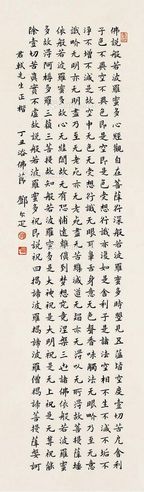 佛說般若波羅蜜多心經觀自在菩薩行深般若波羅蜜多時照見五蘊皆空度壹切苦厄舍利
子色不異空空不異色色即是空空即是色受想行識亦復如是舍利子是諸法空相不生不滅不垢不
淨不增不減是故空中无色无受想行識无眼耳鼻舌身意无色聲香味觸法无眼界乃至无意
識界无无明亦无无明盡乃至无老死亦无老死盡无苦集滅道无智亦无得以无所得故菩提薩埵
依般若波羅蜜多故心无罣礙无罣礙故无有恐怖遠離顛倒夢想究竟涅槃三世諸佛依般若波羅蜜
多故得阿耨多羅三藐三菩提故知般若波羅蜜多是大神呪是大明呪是无上呪是无等等呪能
除壹切苦真實不虛故說般若波羅蜜多呪即說呪曰揭諦揭諦波羅揭諦波羅僧揭諦菩提薩婆訶
先生正楷 丁丑浴佛節 鄧尔疋